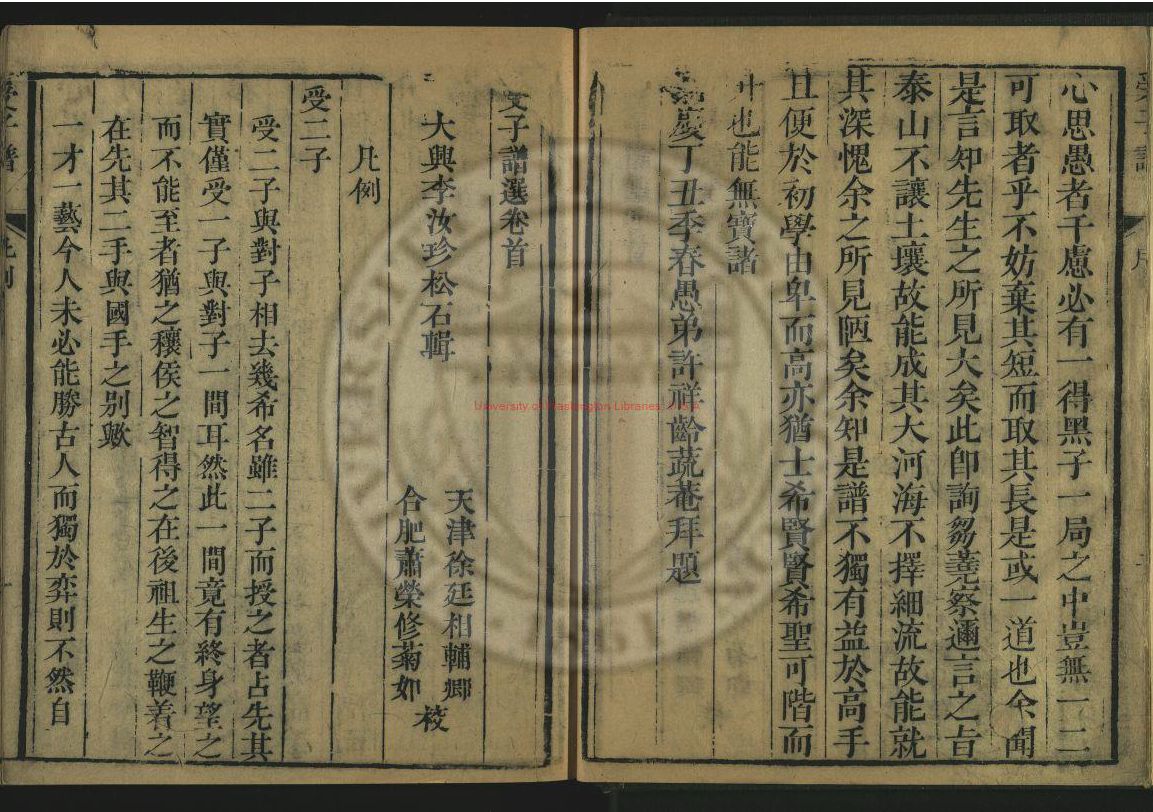 心思愚者千慮必有一得黑子一局之中豈無一二
可取者乎不妨棄其短而取其長是或一道也余聞
是言知先生之所見大矣此卽詢芻蕘察邇言之旨
泰山不讓土壤故能成其大河海不擇細流故能就
其深愧余之所見陋矣余知是譜不獨有益於高手
且便於初學由卑而高亦猶士希賢賢希聖可階而
升也能無寶諸
嘉慶丁丑季春愚弟許祥齡蔬菴拜題
受子譜選卷首
大興李汝珍松石輯
天津徐廷相輔卿
合肥蕭榮修菊如
校
凡例
受二子
受二子與對子相去幾希名雖二子而授之者占先其
實僅受一子與對子一間耳然此一間竟有終身望之
而不能至者猶之穰侯之智得之在後祖生之鞭着之
在先其二手與國手之别歟
一才一藝今人未必能勝古人而獨於弈則不然自
受子譜
凡例
University of Washington Libraries